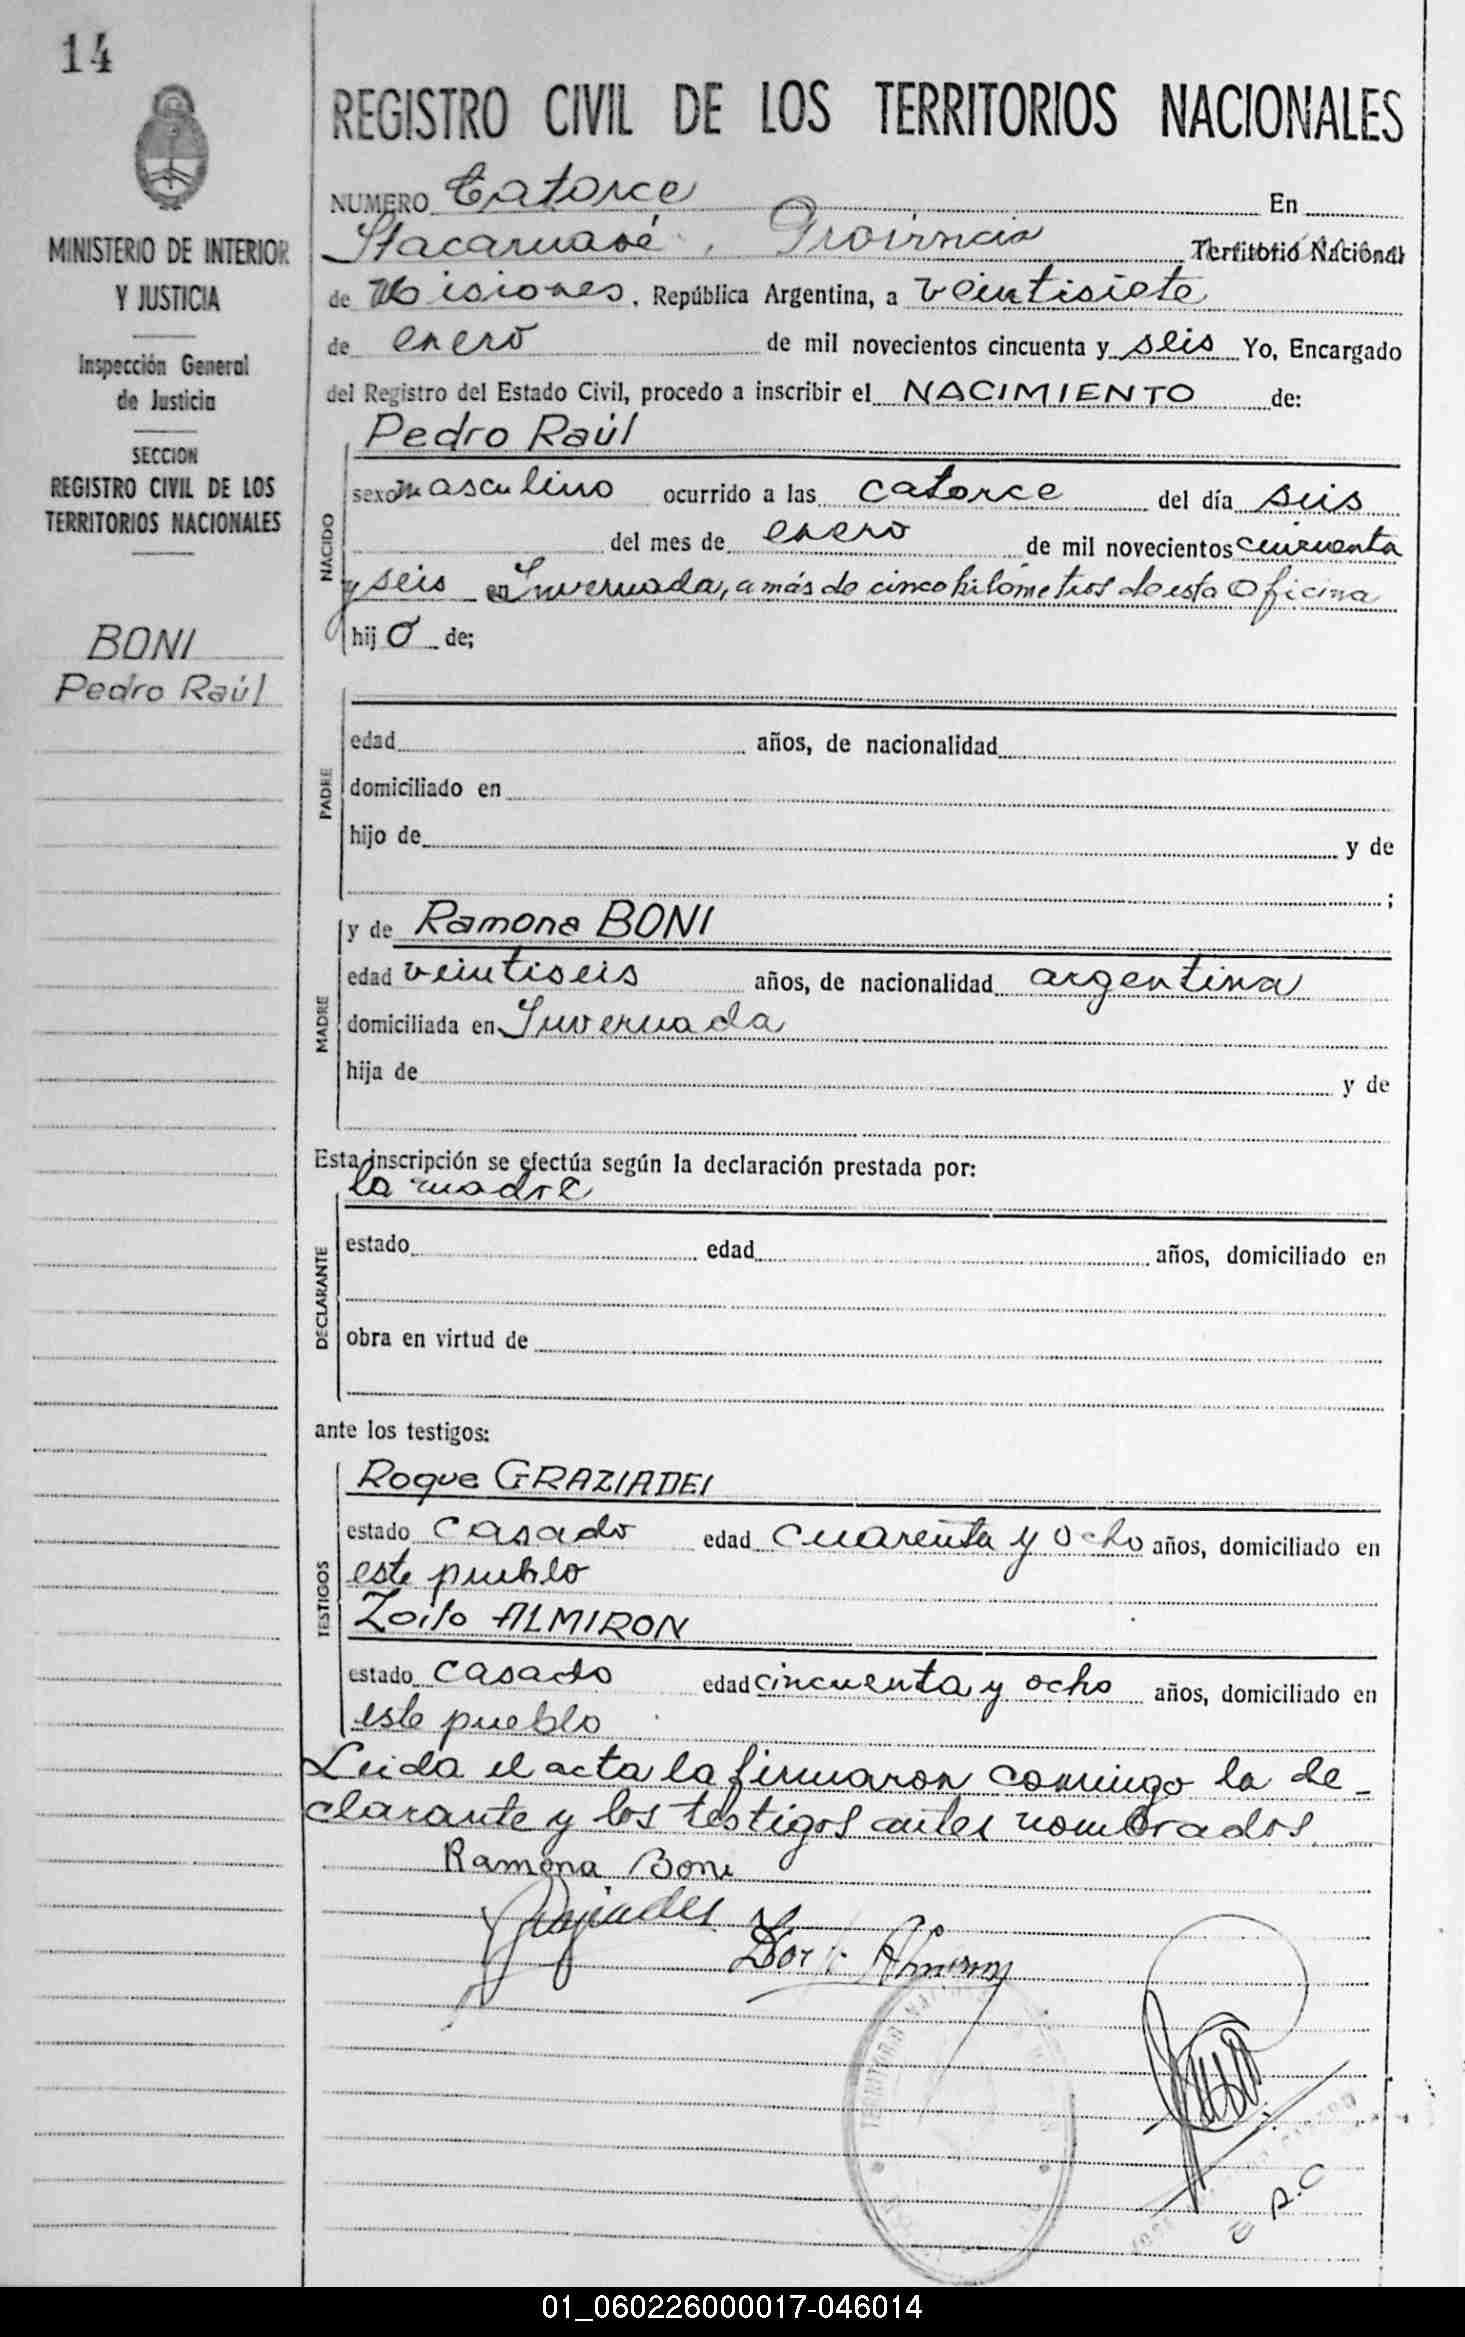 14
MINISTERIO DE INTERIOR
Y JUSTICIA
Inspección General
de Justicia
SECCION
REGISTRO CIVIL DE LOS
TERRITORIOS NACIONALES
BONI
Pedro Raúl
REGISTRO CIVIL DE LOS TERRITORIOS NACIONALES
NUMERO Catorce En
Itacaruaré, Provincia Territorio Nacional
de Misiones, República Argentina, a veintisiete
de enero de mil novecientos cincuenta y seis Yo, Encargado
del Registro del Estado Civil, procedo a inscribir el NACIMIENTO de:
NACIDO
Pedro Raúl
sexo masculino ocurrido a las catorce del día seis
del mes de enero de mil novecientos cincuenta
y seis en Invernada, a más de cinco kilómetros de esta Oficina
hij o de;
PADRE
edad años, de nacionalidad
domiciliado en
hijo de y de
;
MADRE
y de Ramona BONI
edad veintiseis años, de nacionalidad argentina
domiciliada en Invernada
hija de y de
Esta inscripción se efectúa según la declaración prestada por:
DECLARANTE
la madre
estado edad años, domiciliado en
obra en virtud de
ante los testigos:
TESTIGOS
Roque GRAZIADEI
estado casado edad cuarenta y ocho años, domiciliado en
este pueblo
Zoilo ALMIRON
estado casado edad cincuenta y ocho años, domiciliado en
este pueblo
Leida el acta la firmaron conmigo la de-
clarante y los testigos antes nombrados.
Ramona Boni
Almiron
01_060226000017-046014